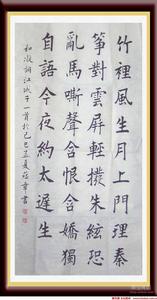 竹裡風生月上門理秦
箏對雲屏輕撥朱絃恐
亂馬嘶聲含恨含嬌獨
自語今夜約太遲生
和凝詞江城子一首於己巳孟夏